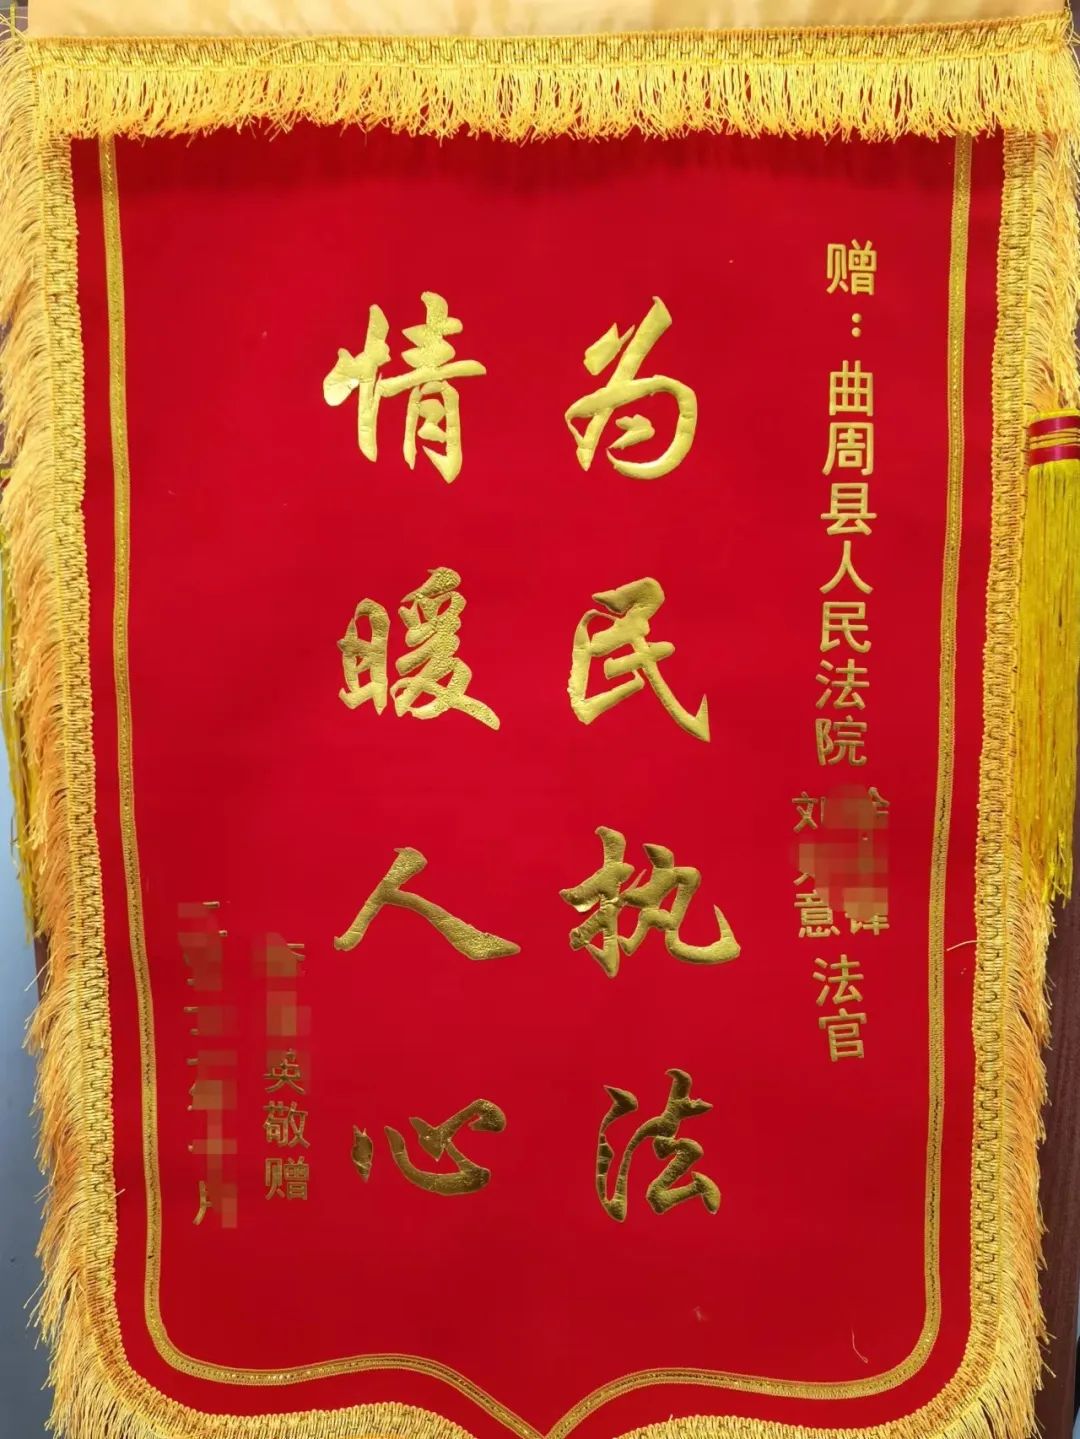 赠：曲周县人民法院
刘
意 锋
法官
为民执法
情暖人心
敬赠
月